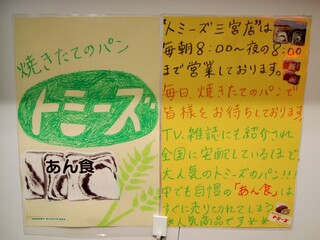 焼きたてのパン
トミーズ
あん食
"トミーズ三宮店"は
毎朝8:00〜夜の8:00
まで営業しております。
毎日、焼きたてのパンで
皆様をお待ちしております
TV、雑誌にも紹介され
全国に宅配しているほど
大人気のトミーズのパン!!!
中でも自慢の「あん食」は
すぐに売り切れてしまう
人気商品です